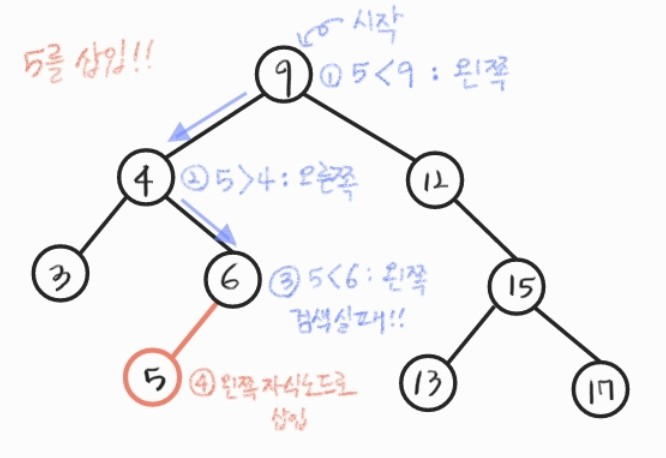 시작
5를 삽입!!
9
① 5<9 : 왼쪽
4
② 5>4 : 오른쪽
12
3
6
③ 5<6 : 왼쪽
검색실패!!
15
5
④ 왼쪽 자식노드로
삽입
13
17